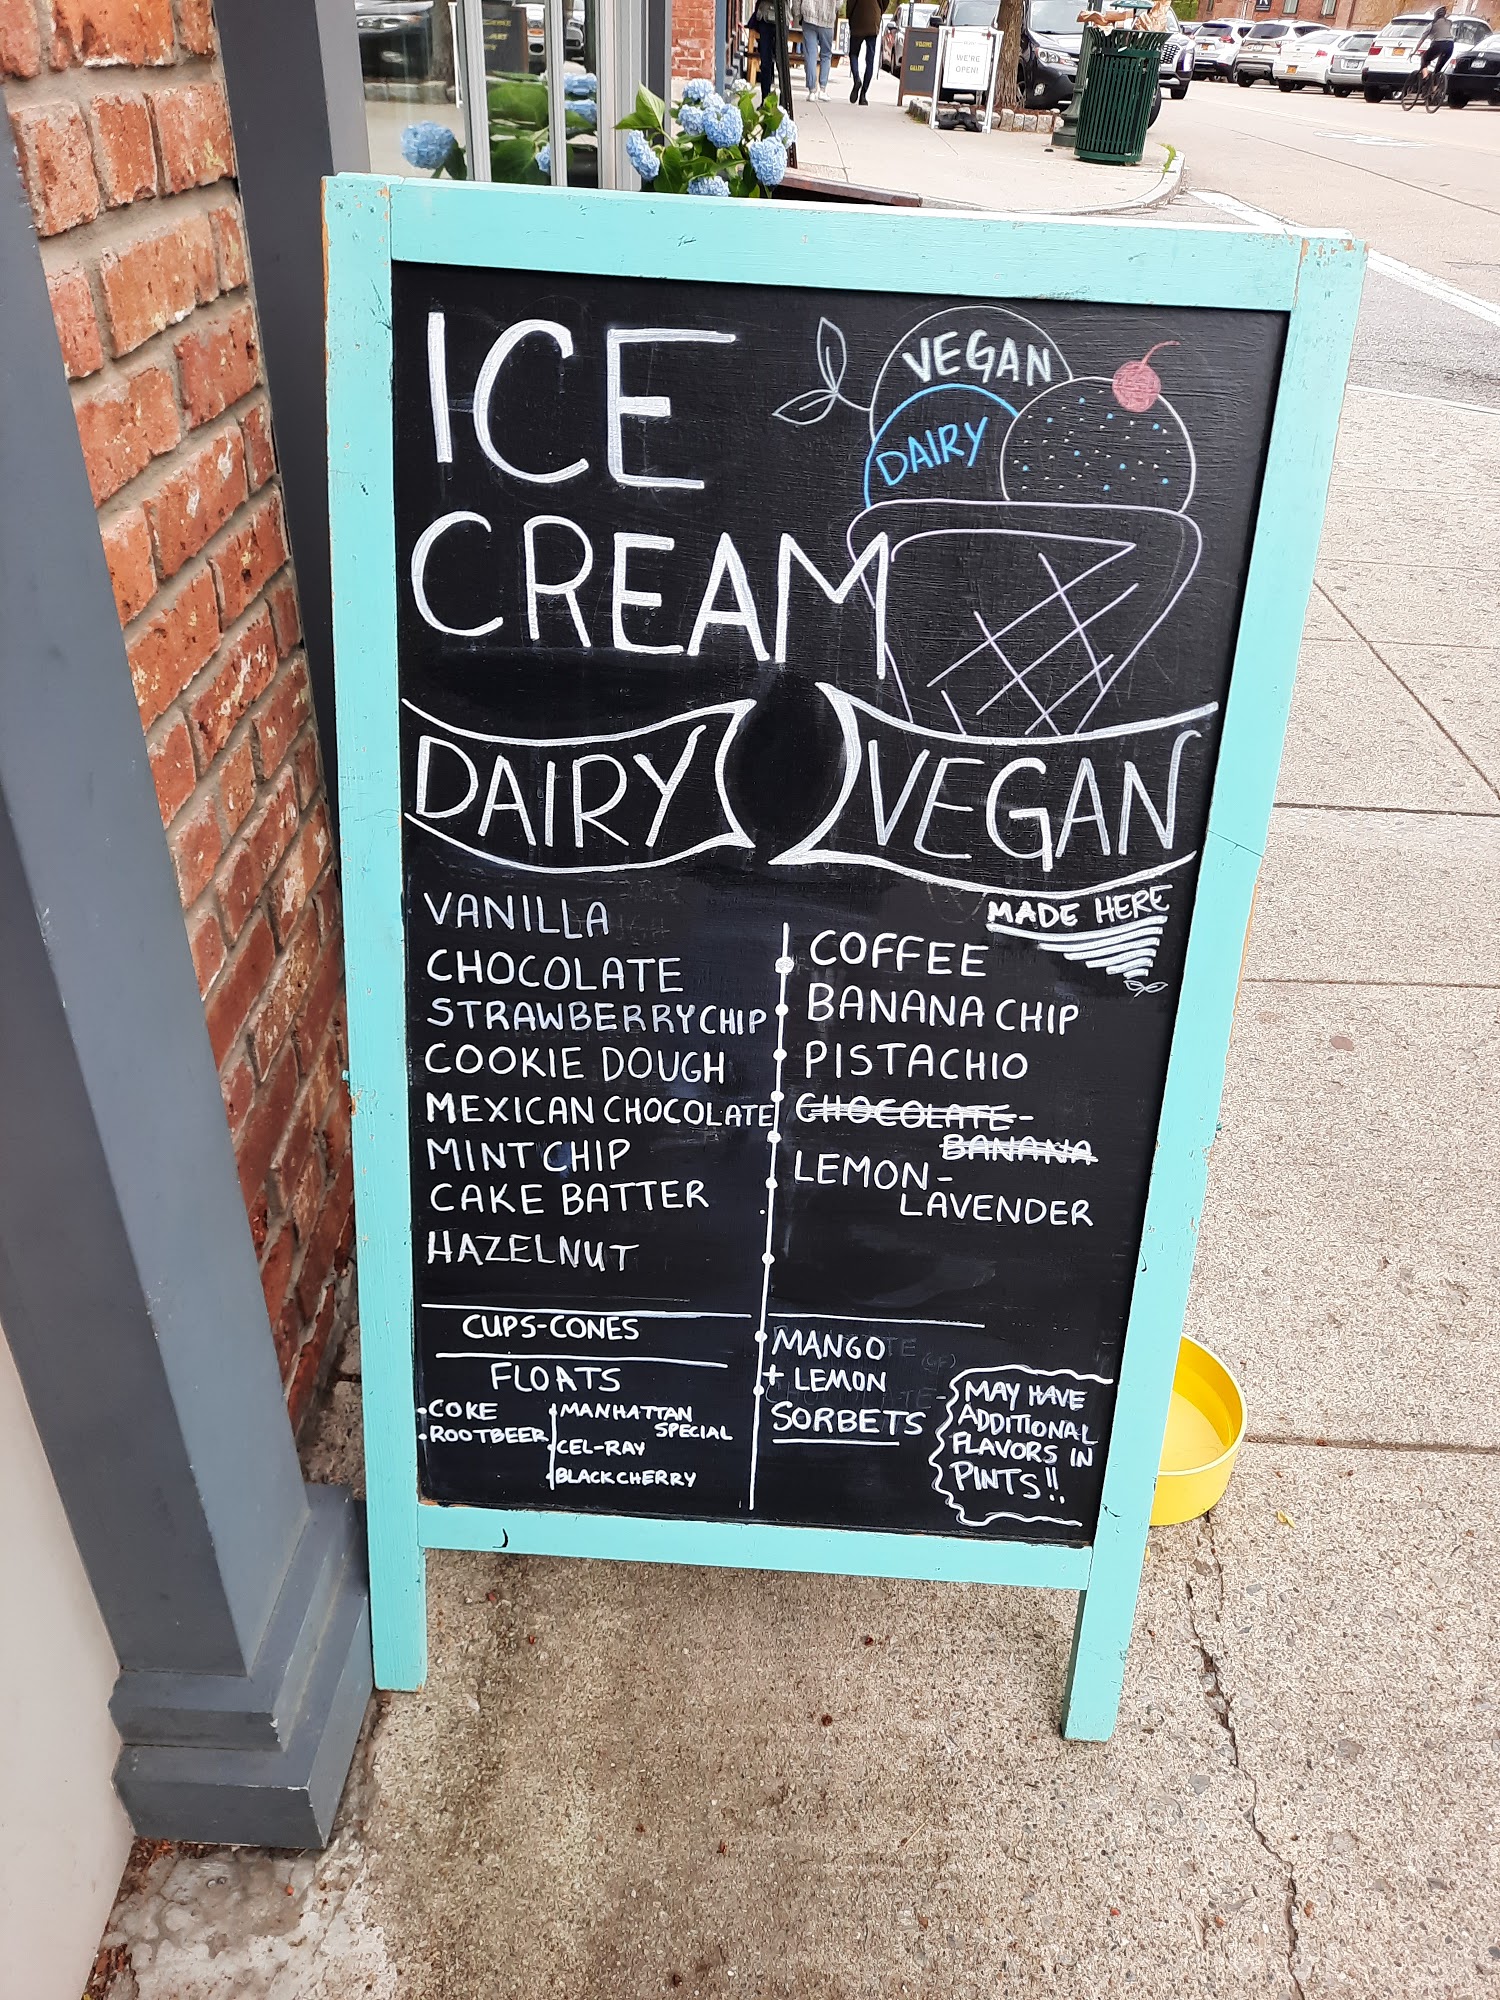 WE'RE
OPEN!
ICE
CREAM
VEGAN
DAIRY
DAIRY
VANILLA
CHOCOLATE
STRAWBERRY CHIP
COOKIE DOUGH
MEXICAN CHOCOLATE
MINT CHIP
CAKE BATTER
HAZELNUT
CUPS-CONES
FLOATS
• COKE
• ROOTBEER
• MANHATTAN
SPECIAL
• CEL-RAY
• BLACK CHERRY
VEGAN
MADE HERE
COFFEE
BANANA CHIP
PISTACHIO
CHOCOLATE-
BANANA
LEMON-
LAVENDER
MANGO
+ LEMON
SORBETS
MAY HAVE
ADDITIONAL
FLAVORS IN
PINTS!!